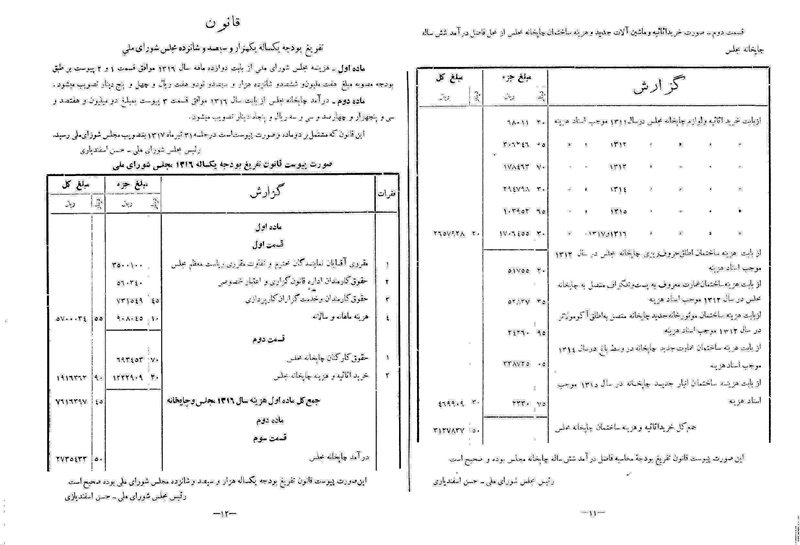 قسمت دوم ــ صورت خرید اثاثیه و ماشین آلات جدید و هزینه ساختمان چاپخانه مجلس از محل فاضل درآمد شش ساله
چاپخانه مجلس
گزارش | مبلغ جزء | مبلغ کل
ریال | دینار | ریال | دینار
از بابت خرید اثاثیه و لوازم چاپخانه مجلس در سال ۱۳۱۱ موجب اسناد هزینه | ۶۸۰۱۱ | ۲۰
» » » ۱۳۱۲ » » » | ۳۰۶۲۴۶ | ۲۵
» » » ۱۳۱۳ » » » | ۱۷۸۴۶۳ | ۷۰
» » » ۱۳۱۴ » » » | ۲۹۴۷۹۸ | ۳۰
» » » ۱۳۱۵ » » » | ۱۰۳۹۵۲ | ۶۵
» » » ۱۳۱۶ و ۱۳۱۷ » » » | ۱۷۰۶۴۵۵ | ۳۰ | ۲۶۵۷۹۲۸ | ۲۰
از بابت هزینه ساختمان اطاق حروف‌ریزی چاپخانه مجلس در سال ۱۳۱۲
موجب اسناد هزینه | ۵۱۷۵۵ | ۲۰
از بابت هزینه ساختمان عمارت معروف به پست و تلگراف متصل به چاپخانه
مجلس در سال ۱۳۱۲ موجب اسناد هزینه | ۵۲۸۲۷ | ۳۵
از بابت هزینه ساختمان موتورخانه جدید چاپخانه متصل به اطاق آکومولاتر
در سال ۱۳۱۲ موجب اسناد هزینه | ۲۴۲۶۰ | ۹۵
از بابت هزینه ساختمان عمارت جدید چاپخانه در وسط باغ در سال ۱۳۱۴
موجب اسناد هزینه | ۳۳۸۷۲۵ | ۰۵
از بابت هزینه ساختمان انبار جدید چاپخانه در سال ۱۳۱۵ موجب
اسناد هزینه | ۲۳۳۰ | ۷۵ | ۴۶۹۹۰۹ | ۳۰
جمع کل خرید اثاثیه و هزینه ساختمان چاپخانه مجلس | ۳۱۲۷۸۳۷ | ۵۰
این صورت پیوست قانون تفریغ بودجه محاسبه فاضل درآمد شش ساله چاپخانه مجلس بوده و صحیح است
رئیس مجلس شورای ملی ــ حسن اسفندیاری
ــ۱۱ــ
قانون
تفریغ بودجه یکساله یکهزار و سیصد و شانزده مجلس شورای ملی
ماده اول ــ هزینه مجلس شورای ملی از بابت دوازده ماهه سال ۱۳۱۶ موافق قسمت ۱ و ۲ پیوست بر طبق
بودجه مصوبه مبلغ هفت میلیون و ششصد و شانزده هزار و سیصد و نود و هفت ریال و چهل و پنج دینار تصویب میشود.
ماده دوم ــ درآمد چاپخانه مجلس از بابت سال ۱۳۱۶ موافق قسمت ۳ پیوست بمبلغ دو میلیون و هفتصد و
سی و پنجهزار و چهارصد و سی و سه ریال و پنجاه دینار تصویب میشود.
این قانون که مشتمل بر دو ماده و صورت پیوست است در جلسه ۳۱ تیر ماه ۱۳۱۷ بتصویب مجلس شورای ملی رسید.
رئیس مجلس شورای ملی ــ حسن اسفندیاری
صورت پیوست قانون تفریغ بودجه یکساله ۱۳۱۶ مجلس شورای ملی
فقرات | گزارش | مبلغ جزء | مبلغ کل
دینار | ریال | دینار | ریال
ماده اول
قسمت اول
۱ | مقرری آقایان نمایندگان محترم و تفاوت مقرری ریاست معظم مجلس | ۳۵۰۰۱۰۰
۲ | حقوق کارمندان اداره قانون‌گزاری و اعتبار خصوص | ۵۶۰۲۴۰
۳ | حقوق کارمندان و خدمت‌گزاران کارپردازی | ۴۵ | ۷۳۱۵۴۹
۴ | هزینه ماهانه و سالانه | ۱۰ | ۹۰۸۰۴۵ | ۵۵ | ۵۷۰۰۰۳۴
قسمت دوم
۱ | حقوق کارکنان چاپخانه مجلس | ۷۰ | ۶۹۳۴۵۳
۲ | خرید اثاثیه و هزینه چاپخانه مجلس | ۲۰ | ۱۲۲۲۹۰۹ | ۹۰ | ۱۹۱۶۳۶۲
جمع کل ماده اول هزینه سال ۱۳۱۶ مجلس و چاپخانه | ۴۵ | ۷۶۱۶۳۹۷
ماده دوم
قسمت سوم
درآمد چاپخانه مجلس | ۵۰ | ۲۷۳۵۴۳۳
این صورت پیوست قانون تفریغ بودجه یکساله هزار و سیصد و شانزده مجلس شورای ملی بوده صحیح است
رئیس مجلس شورای ملی ــ حسن اسفندیاری
ــ۱۲ــ